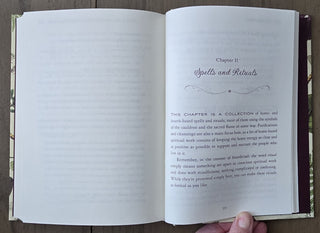 Chapter 11
Spells and Rituals
THIS CHAPTER IS A COLLECTION of home- and
hearth-based spells and rituals, most of them using the symbols
of the cauldron and the sacred flame in some way. Purification
and cleansings are also a main focus here, as a lot of home-based
spiritual work consists of keeping the home energy as clear and
as positive as possible to support and nurture the people who
live in it.
Remember, in the context of hearthcraft the word ritual
simply means something set apart to
and done with mindfulness, nothing complicated or confusing.
While they're presented simply here, you can make these rituals
as formal as you like.